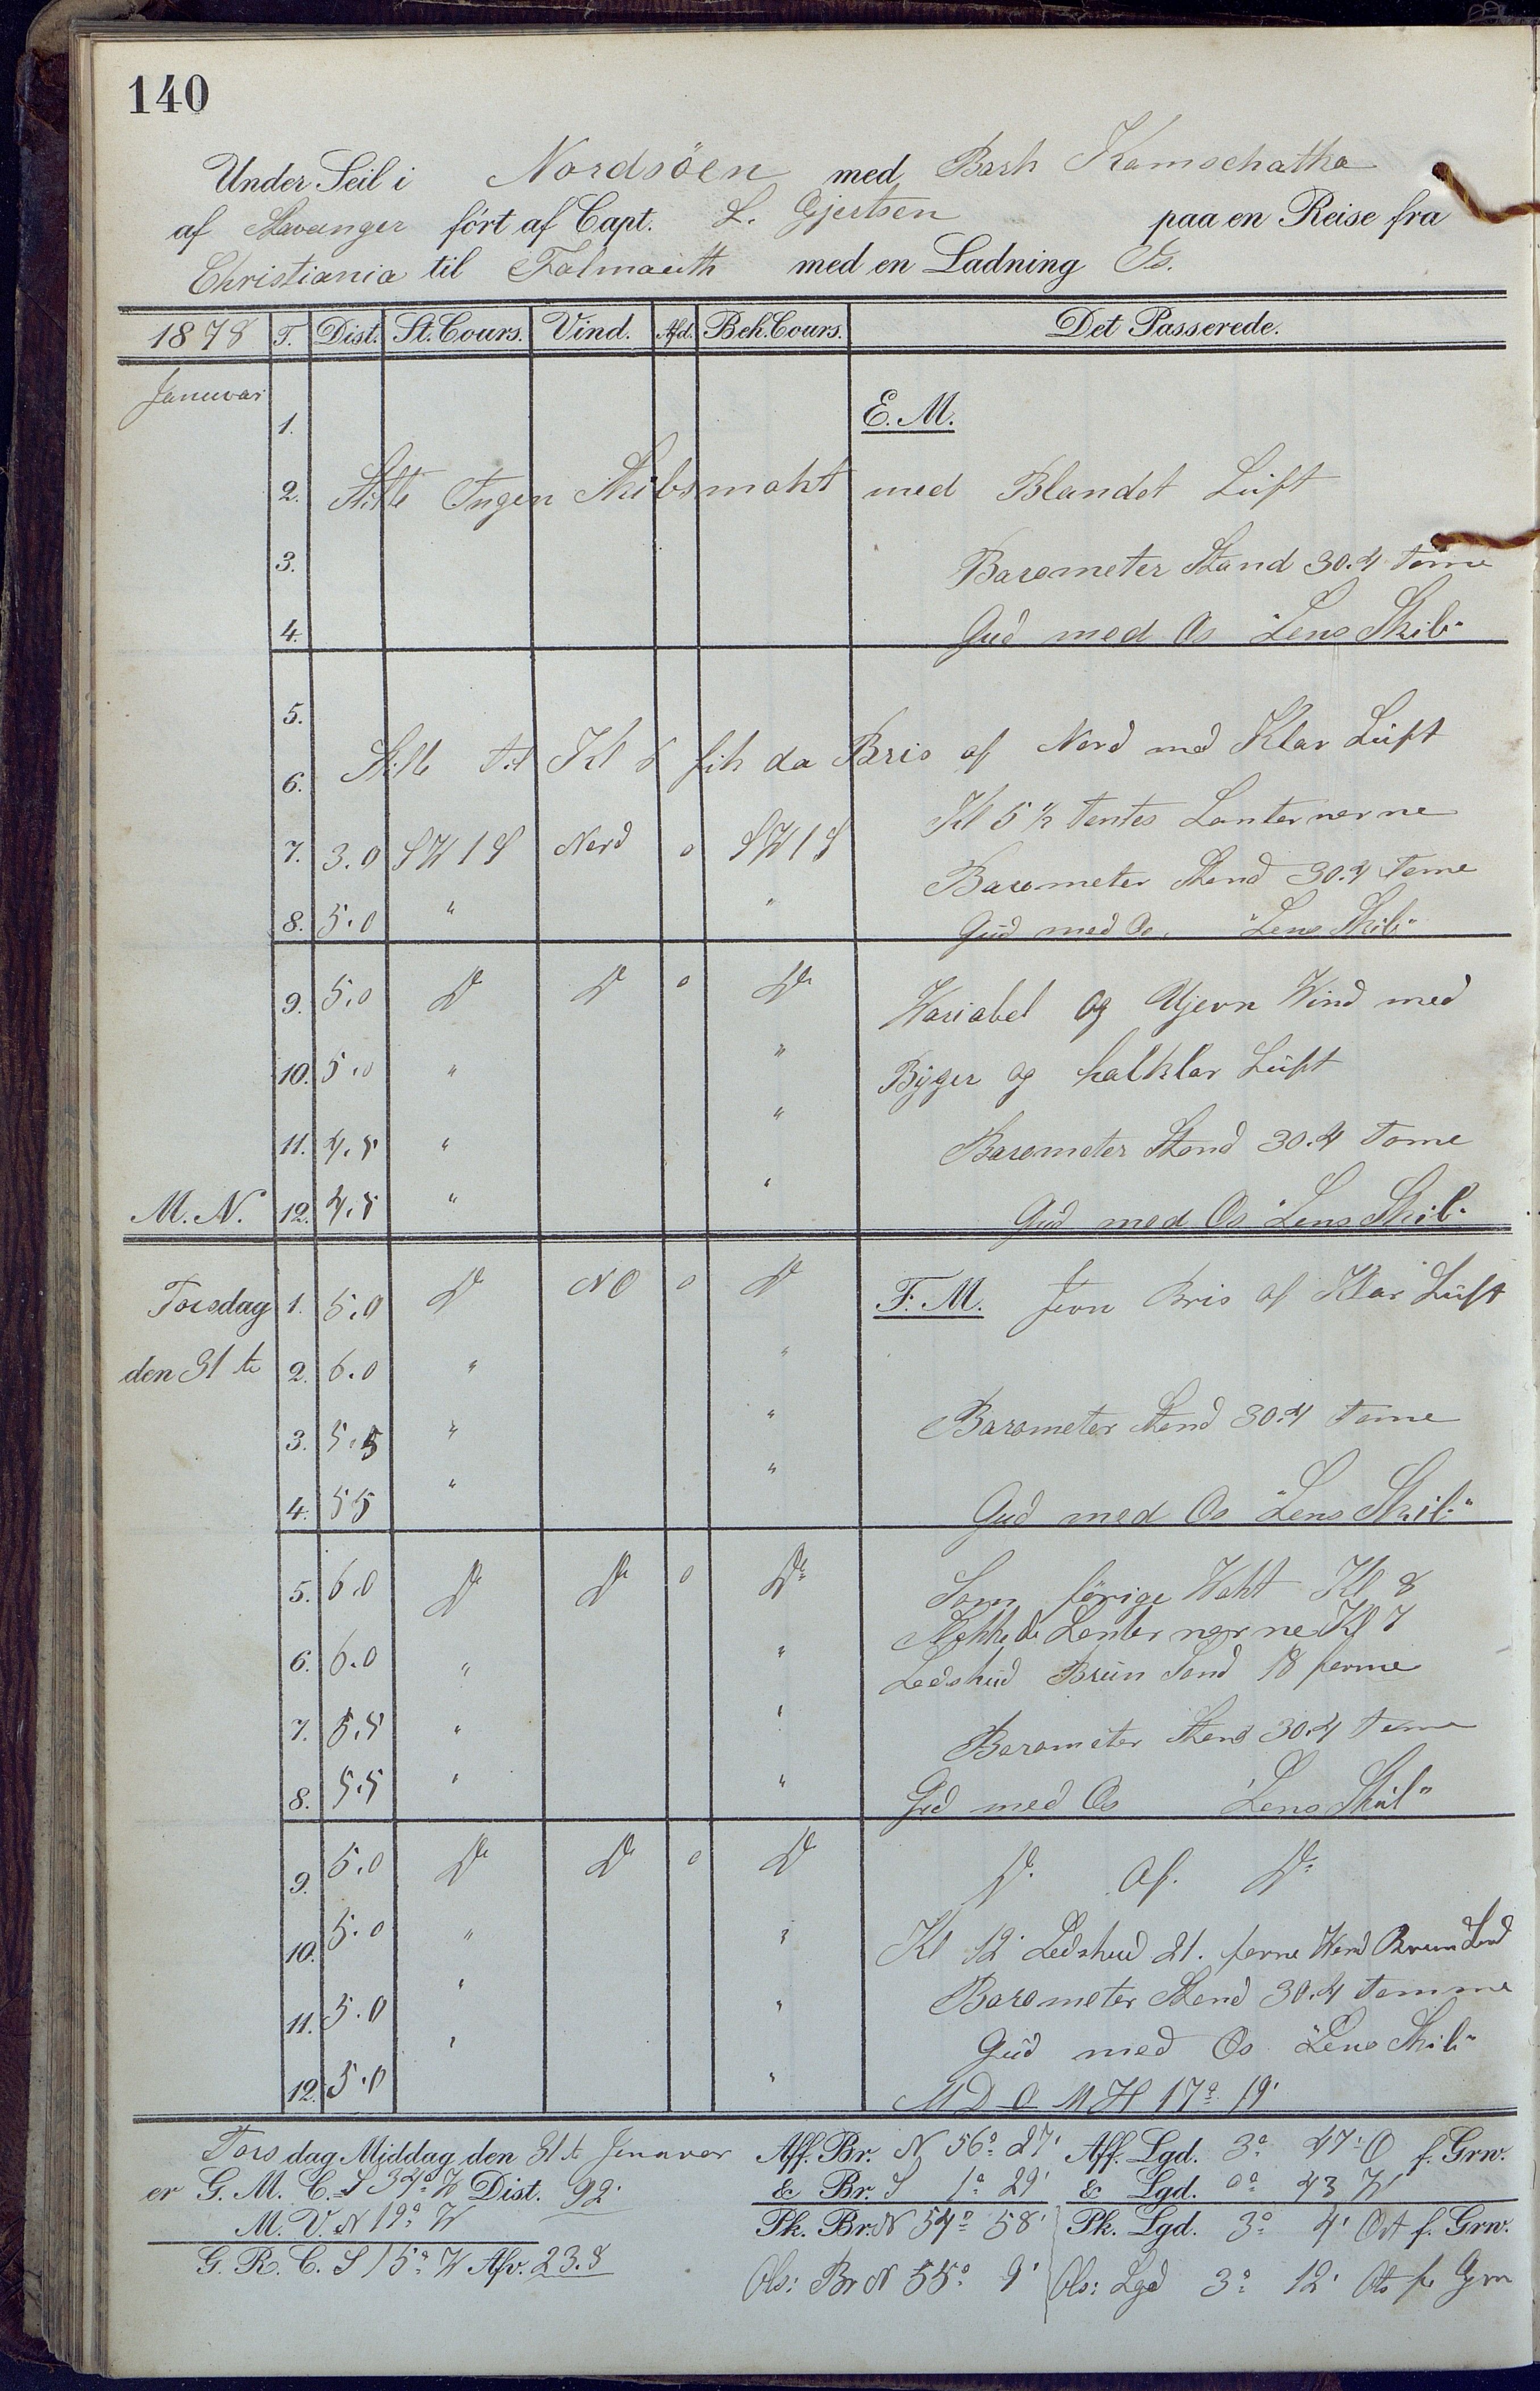 140
Under Seil i Nordsöen med Bark Kamschatka
af Stavanger fört af Capt. L. Gjertsen paa en Reise fra
Christiania til Falmauth med en Ladning Is.
1878 T. Dist. St. Cours. Vind. Afd. Beh. Cours. Det Passerede.
Januvar
1. E. M.
2. Stille Ingen Skibsmakt med Blandet Luft
3. Barometer Stand 30.4 Tome
4. Gud med Os "Lens Skib"
5.
6. Stille til Kl 6 fik da Bris af Nord med Klar Luft
Kl 5 ½ tentes Lanternerne
7. 3.0 SW 1 S Nord 0 SW 1 S
Barometer Stand 30.4 Tome
8. 5.0 " " Gud med Os. "Lens Skib"
9. 5.0 Do Do 0 Do Wariabel og Ujevn Wind med
10. 5.0 " " Byger og halklar Luft
11. 4.5 " " Barometer Stand 30.4 Tome
M. N. 12. 4.5 " " Gud med Os "Lens Skib"
Torsdag 1. 5.0 Do NO 0 Do F. M. Jevn Bris af Klar Luft
den 31 te 2. 6.0 " "
3. 5.5 " " Barometer Stand 30.4 Tome
4. 55 " " Gud med Os "Lens Skib"
5. 6.0 Do Do 0 Do Som förige Wakt Kl 8
Slukkede Lanternerne Kl 7
6. 6.0 " " Lodskud Brun Sand 18 favne
7. 5.5 " " Barometer Stand 30.4 Tome
8. 5.5 " " Gud med Os "Lens Skib"
9. 5.0 Do Do 0 Do Do. Af. Do
10. 5.0 " " Kl 12 Lodskud 21. favne Brun Sand
Barometer Stand 30.4 Tomme
11. 5.0 " " Gud med Os "Lens Skib"
12. 5.0 " " M D O M H 17° 19'
Torsdag Middag den 31 te Januvar Aff. Br. N 56° 27' Aff. Lgd. 3° 47' O f. Grw.
er G. M. C. S 34° W Dist. 92' & Br. S 1° 29' & Lgd. 0° 43 W
M. V. N 19° W Pk. Br. N 54° 58' Pk. Lgd. 3° 4' Ost f. Grw.
G. R. C. S 15° W Afv. 23.8
Obs: Br N 55° 9' Obs: Lgd 3° 12' Ost fr Grn